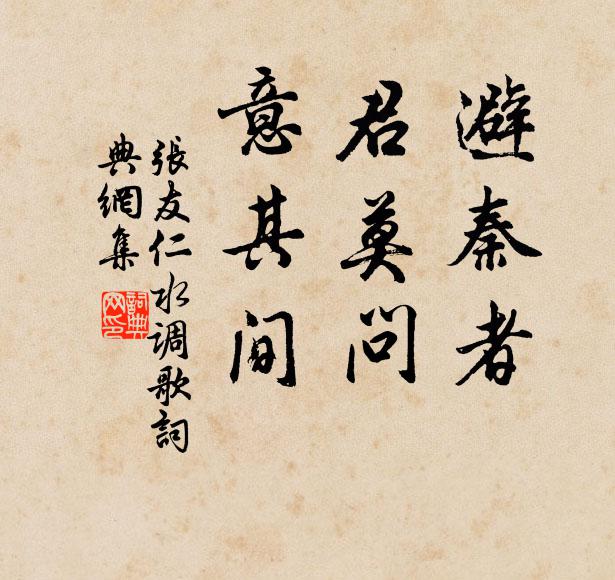 避秦者
君莫問
意其間
張友仁水调歌詞
典網集
詞典
网印